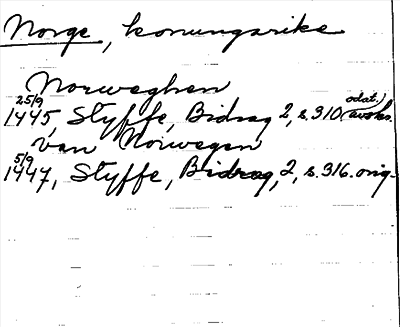 Norge, konungarike
Norweghen
25/9 1445 Styffe, Bidrag 2, s. 310 (odat.) avskr.
van Norwegen
5/9 1447, Styffe, Bidrag, 2, s. 316. orig.